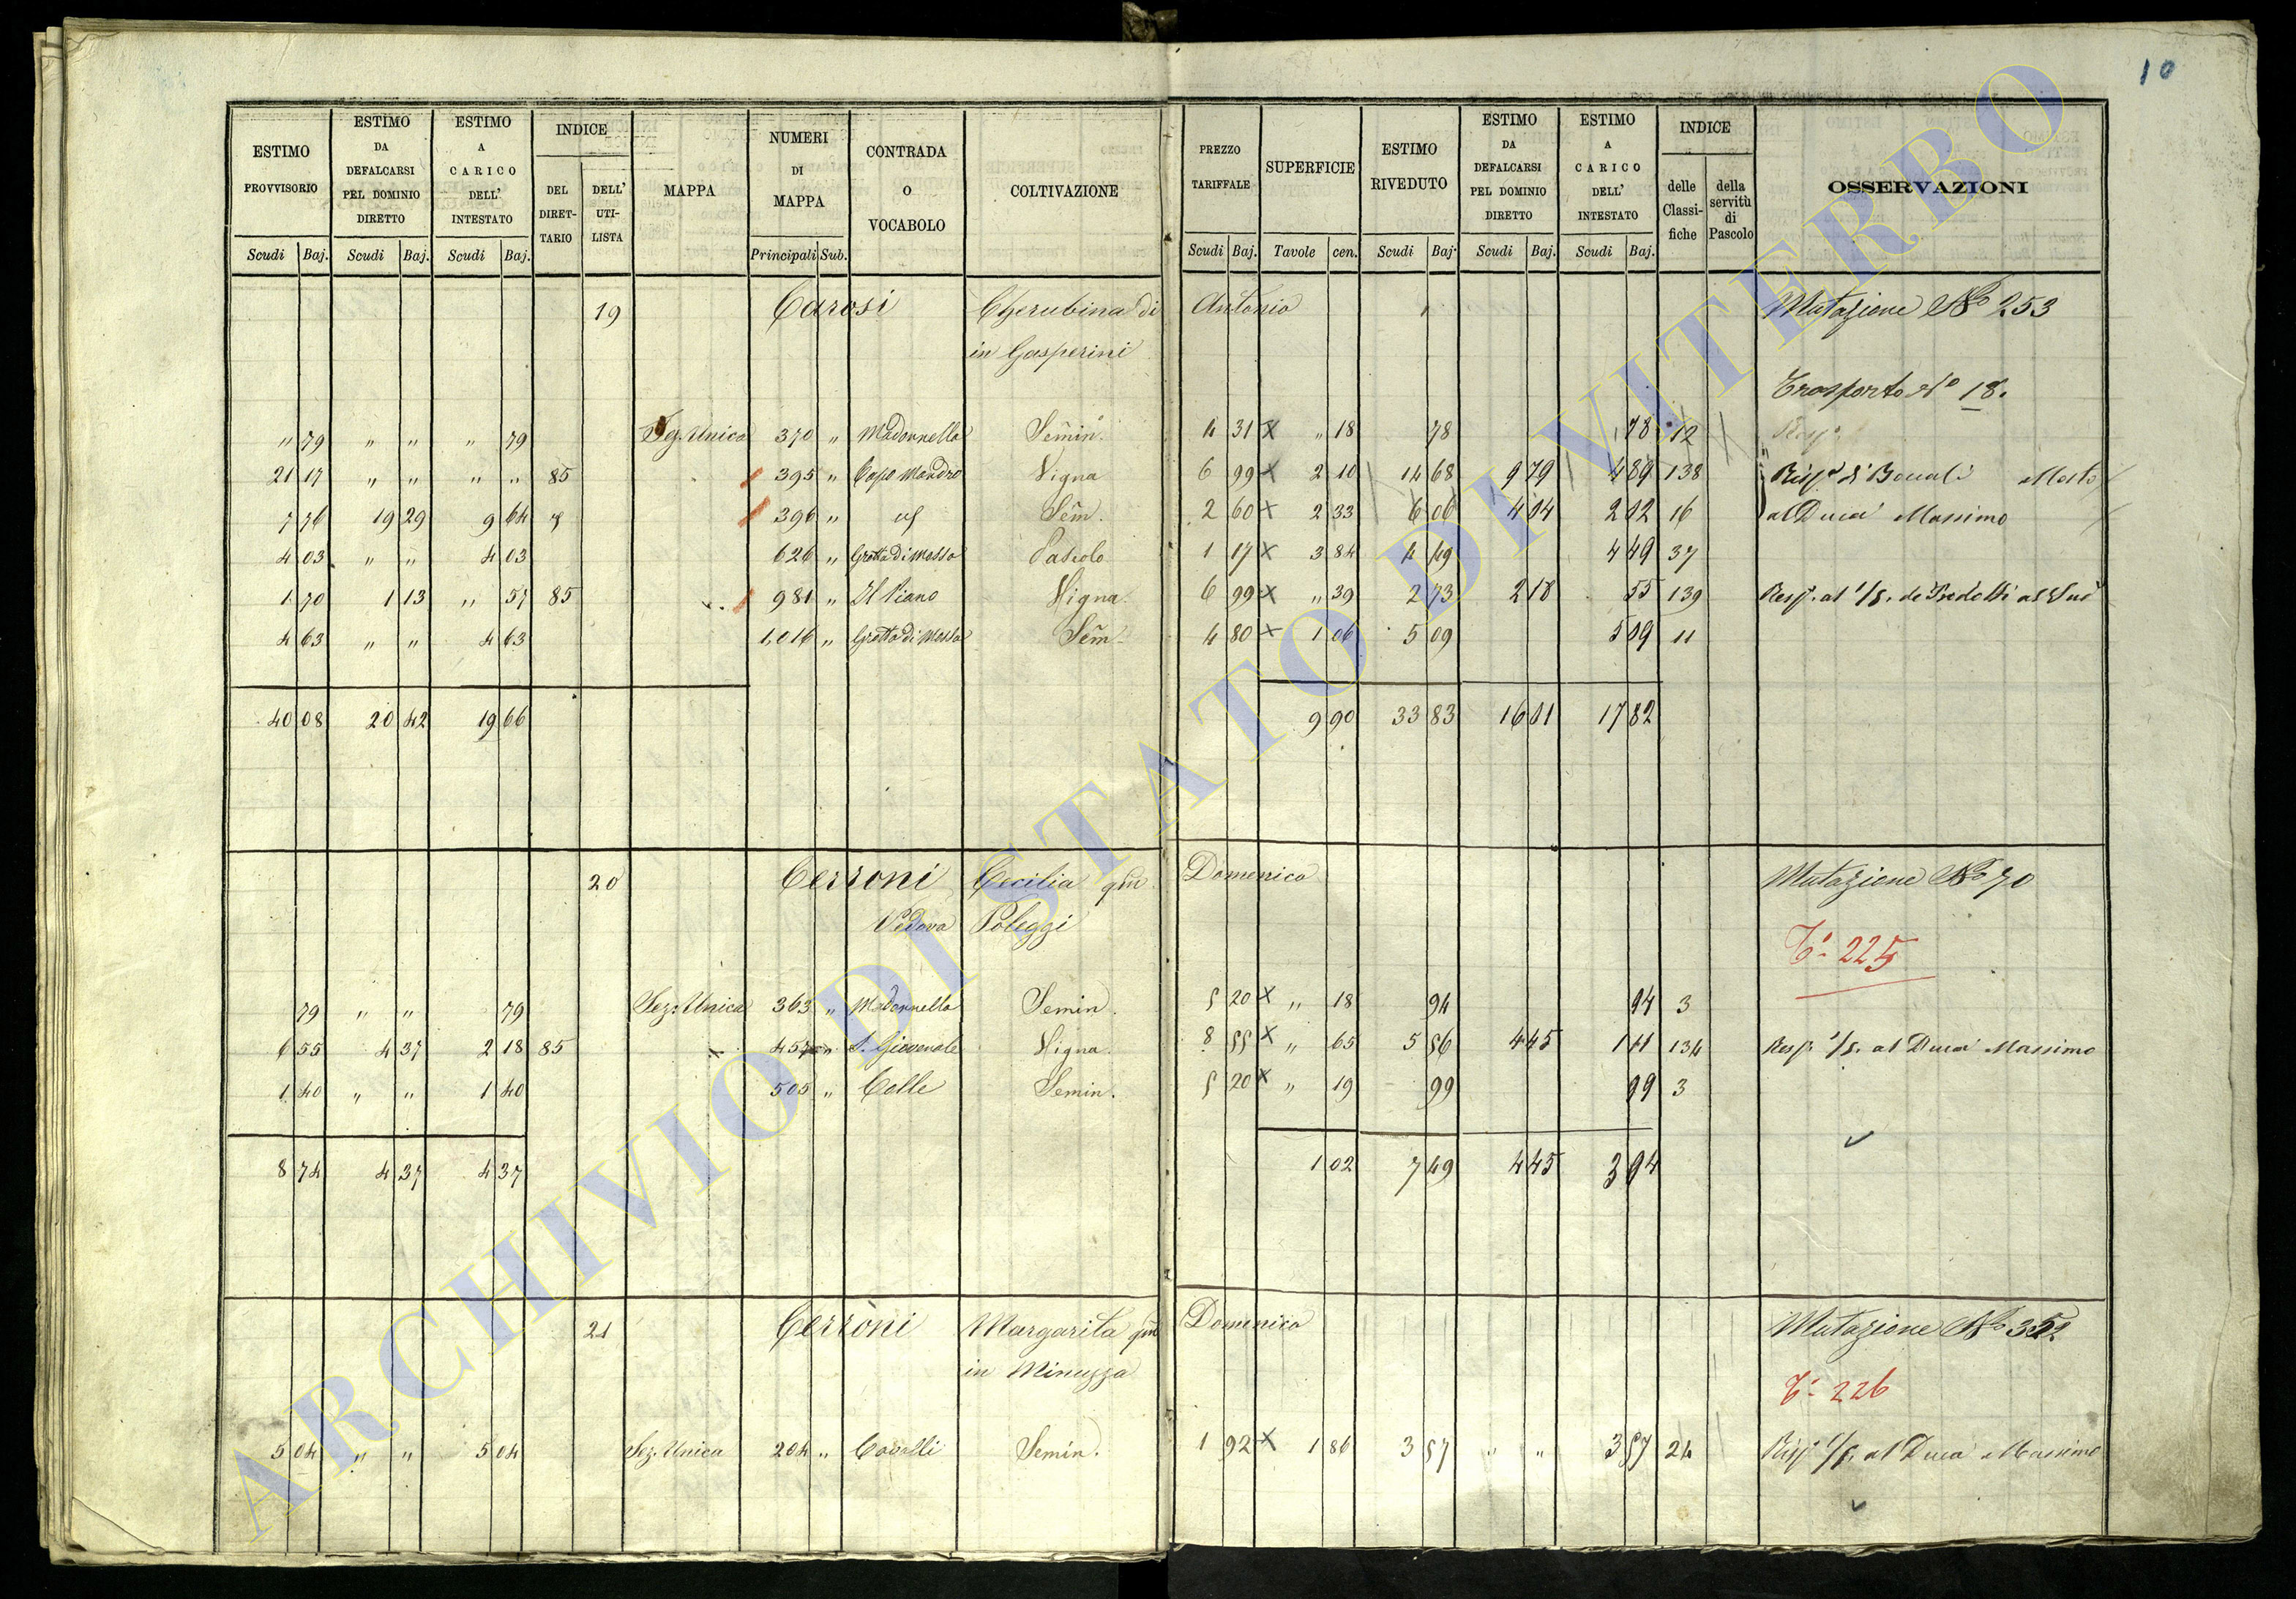 10
ESTIMO PROVVISORIO
ESTIMO DA DEFALCARSI PEL DOMINIO DIRETTO
ESTIMO A CARICO DELL' INTESTATO
INDICE
DEL DIRET-TARIO
DELL' UTI-LISTA
MAPPA
NUMERI DI MAPPA
CONTRADA O VOCABOLO
COLTIVAZIONE
PREZZO TARIFFALE
SUPERFICIE
ESTIMO RIVEDUTO
ESTIMO DA DEFALCARSI PEL DOMINIO DIRETTO
ESTIMO A CARICO DELL' INTESTATO
INDICE
delle Classi-fiche
della servitù di Pascolo
OSSERVAZIONI
Scudi Baj. Scudi Baj. Scudi Baj. Principali Sub. Scudi Baj. Tavole cen. Scudi Baj. Scudi Baj. Scudi Baj.
19 Carosi Cherubina di Antonio Mutazione No 253
in Gasperini
Trasporto No 18.
" 79 " " " 79 Sez. Unica 370 " Madonnella Semin. 4 31 x " 18 78 78 12 Resp.
21 17 " " " " 85 395 " Capo Mandro Vigna 6 99 x 2 10 14 68 9 79 4 89 138
7 76 19 29 9 64 396 " Sem. 2 60 x 2 33 6 06 4 04 2 02 16 al Duca Massimo
4 03 " " 4 03 626 " Grotta di Mosso Pascolo 1 17 x 3 84 4 49 4 49 37
1 70 1 13 " 57 85 981 " Il Piano Vigna 6 99 x " 39 2 73 2 18 55 139
4 63 " " 4 63 1,016 " Grotta di Mosso Sem. 4 80 x 1 06 5 09 5 09 11
40 08 20 42 19 66 9 90 33 83 16 01 17 82
20 Cerroni Cecilia qm Domenico Mutazione No 70
Vedova Poleggi
T. 225
79 " " 79 Sez. Unica 363 " Madonnella Semin. 5 20 x " 18 94 94 3
6 55 4 37 2 18 85 457 " S. Giovenale Vigna 8 55 x " 65 5 56 4 45 1 11 134 Resp. 1/5. al Duca Massimo
1 40 " " 1 40 505 " Colle Semin. 5 20 x " 19 99 99 3
8 74 4 37 4 37 1 02 7 49 4 45 3 04
21 Cerroni Margarita qm Domenico Mutazione No 352
in Minuzza
T. 226
5 04 " " 5 04 Sez. Unica 204 " Cavalli Semin. 1 92 x 1 86 3 57 " " 3 57 24 Resp. 1/5. al Duca Massimo
ARCHIVIO DI STATO DI VITERBO